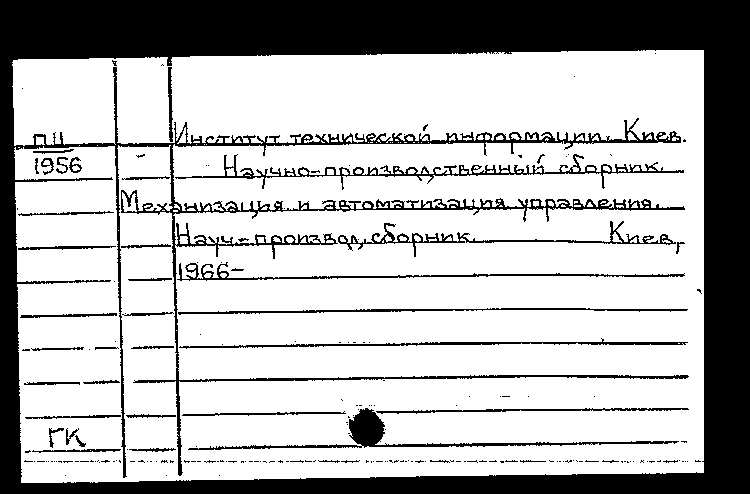 П11 Институт технической информации. Киев.
1956 - Научно-производственный сборник.
Механизация и автоматизация управления.
Науч-производ, сборник. Киев,
1966-
ГК